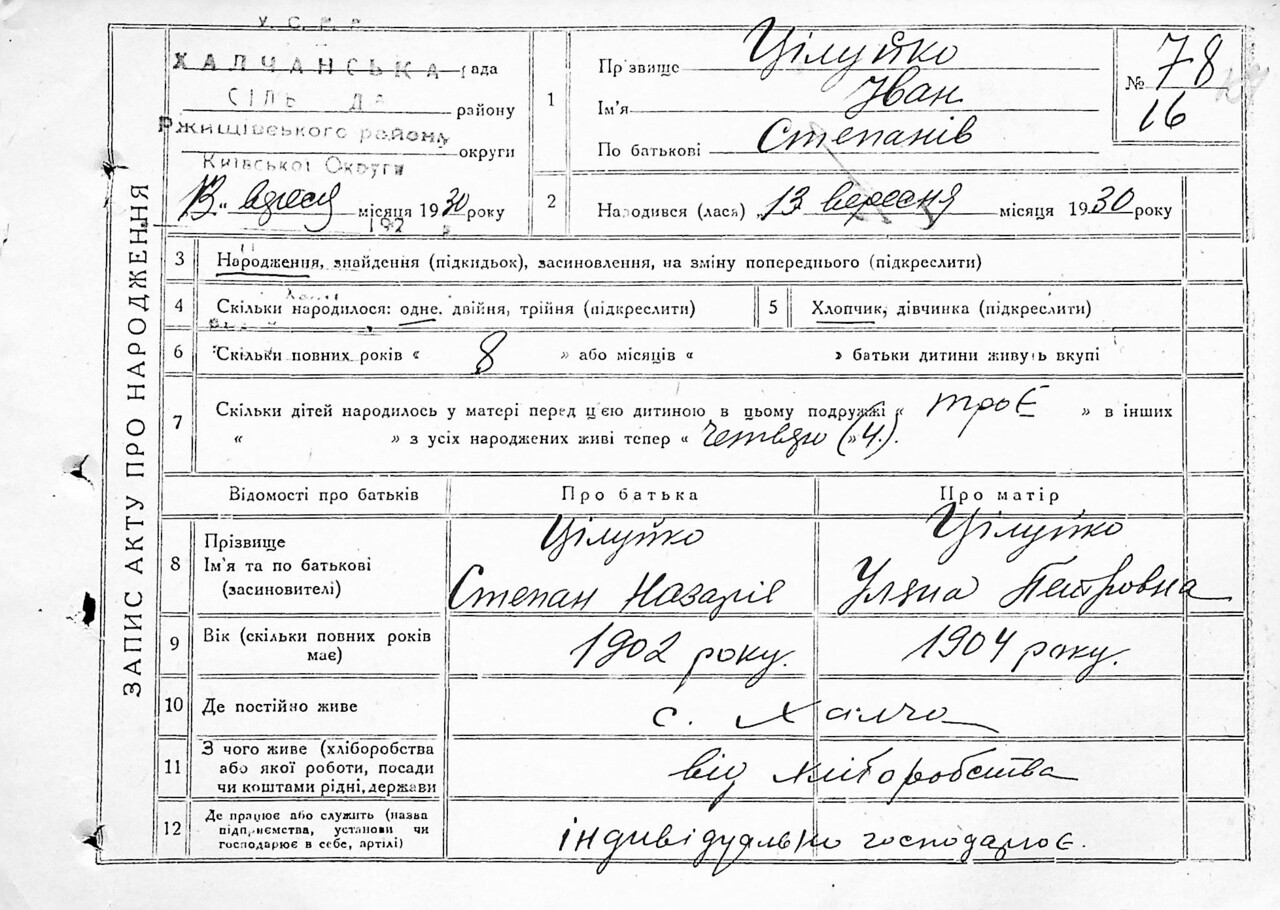 У.С.Р.Р.
ХАЛЧАНСЬКА рада
СІЛЬ ДА району
Ржищівського району
Київської Округи округи
13 " вересня місяця 1930 року
192 р
1
Прізвище Цілуйко
Ім'я Іван
По батькові Степанів
№ 78
16
2
Народився (лася) 13 вересня місяця 1930 року
ЗАПИС АКТУ ПРО НАРОДЖЕННЯ
3 Народження, знайдення (підкидьок), засиновлення, на зміну попереднього (підкреслити)
4 Скільки народилося: одне. двійня, трійня (підкреслити)
5 Хлопчик, дівчинка (підкреслити)
6 Скільки повних років « 8 » або місяців « » батьки дитини живуть вкупі
7 Скільки дітей народилось у матері перед цією дитиною в цьому подружжі « троє » в інших
« » з усіх народжених живі тепер « (4).
Відомості про батьків Про батька Про матір
8 Прізвище
Ім'я та по батькові
(засиновителі)
Цілуйко
Степан Назарів
Цілуйко
Уляна Петровна
9 Вік (скільки повних років
має)
1902 року. 1904 року.
10 Де постійно живе с. Халча
11 З чого живе (хліборобства
або якої роботи, посади
чи коштами рідні, держави
від хліборобства
12 Де працює або служить (назва
підприємства, установи чи
господарює в себе, артілі)
індивідуально господарює.